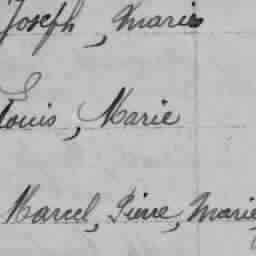 Joseph, Marie
Louis, Marie
Marcel, Pierre, Marie